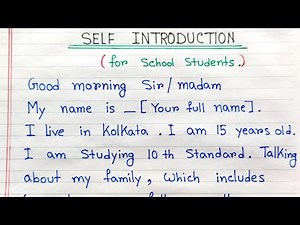 SELF INTRODUCTION
(for School Students.)
Good morning Sir/madam
My name is _ [Your full name].
I live in Kolkata. I am 15 years old.
I am Studying 10th Standard. Talking
about my family, which includes